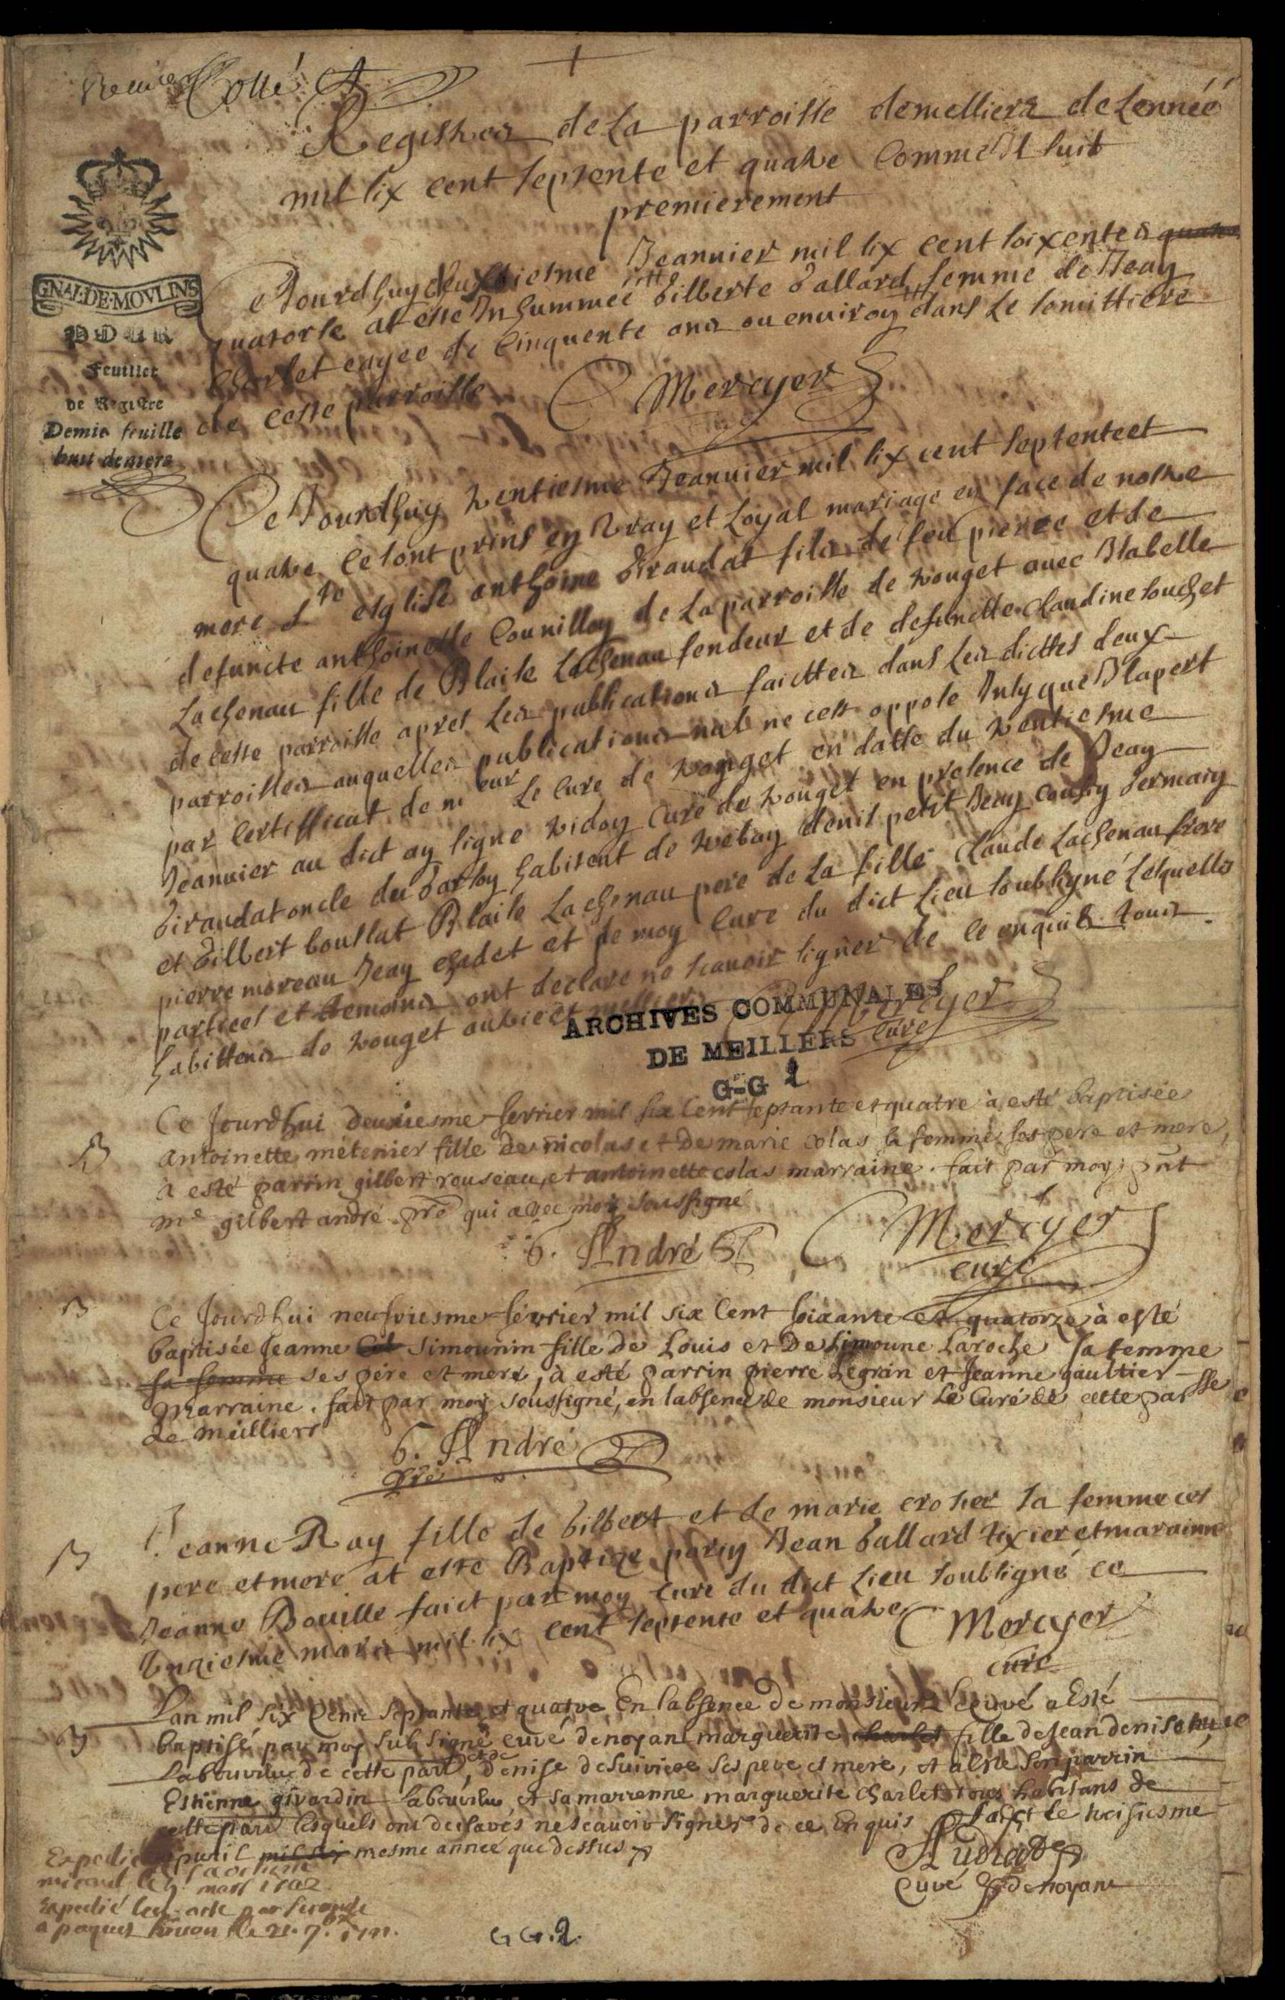 Collé
Registres de La parroisse demelliers de Lennéé
mil six cent septente et quatre Comme Il suit
premierement
GNAL·DE·MOVLINS
POUR
Feuillet
de Registre
Demie feuille
huit deniers
Ce Jourdhuy Jeanvier mil six cent soixente & quatre
quatorse at esté Inhummée Gilberte Gallard femme de Jean
Charlet eagee de Cinquente ans ou enuiron dans Le semittiere
de ceste parroisse
Mercyer
Ce Jourdhuy ventiesme Jeanvier mil six cent septente et
quatre ce sont prins en vray et Loyal mariage en face de nostre
mere Ste esglise anthoine Giraudat fils de feu pierre et de
defuncte anthoinette Counillon de La parroisse de vouget avec Isabelle
Lachenau fille de Blaise Lachenau fendeur et de defunctte Claudine Souchet
de ceste parroisse apres Les publications faicttes dans Les dicttes deux
parroisses auquelles publications nul ne cest oppose Insy que Il apert
par Certifficat de mr Le Cure de vouget en datte du ventiesme
Jeanvier au dict an signe vidoy Cure de vouget en presence de Jean
Giraudat oncle du Garson habitent de Denis petit Jean cousin Germain
et Gilbert boullat Blaise Lachenau pere de La fille Claude Lachenau frere
pierre moreau Jean chadet et de moy Cure du dict Lieu soubsigné Lesquelles
partiees et temoins ont declare ne scavoir signer de ce enquis tous
habittens de vouget
Mercyer
Cure
ARCHIVES COMMUNALES
DE MEILLERS
G-G 2
B
Ce Jourdhui deuxiesme fevrier mil six Cent septante et quatre à esté baptisée
antoinette métenier fille de nicolas et de marie colas sa femme ses pere et mere,
a esté parrin gilbert rouseau, et antoinette colas marraine. fait par moy pnt
me gilbert andré pre qui avec moy soussigné
G. André
Mercyer
curé
B
Ce Jourdhui neufviesme février mil six Cent soixante et quatorze à esté
baptisée Jeanne Simounin fille de Louis et De Simoune Laroche sa femme
sa femme ses pére et mere, à esté parrin pierre Legrin et Jeanne gaultier
marraine. fait par moy soussigné, en labsence de monsieur Le Curé de cette parsse
de meilliers
G. André
pre
B
Jeanne Ray fille de Gilbert et de marie crosier sa femme ces
pere et mere at esté Baptize parin Jean Gallard tixier et maraine
Jeanne Bouille faict par moy Cure du dict Lieu soubsigné ce
Unziesme mars mil six cent septente et quatre
Mercyer
cure
B
Lan mil six Cent septante et quatre En labsence de monsieur le curé a Esté
baptisé par moy subsigné curé de noyan marguerite charles fille de Jean denis
Laboureur de cette parr, et de denise desuivieve ses pere et mere, et a esté son parrin
Estienne girardin laboureur et sa marrenne marguerite Charlet tous habitans de
cette parr Lesquels ont declarés ne scavoir signer de ce Enquis faict le troisiesme
apvril mil six mesme année que dessus
Audiat
Curé de noyant
Expedié
mars 1702
Expedié
GG.2.